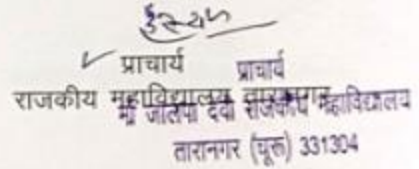 प्राचार्य प्राचार्य
राजकीय महाविद्यालय तारानगर
माँ जालपा देवी राजकीय महाविद्यालय
तारानगर (चूरू) 331304